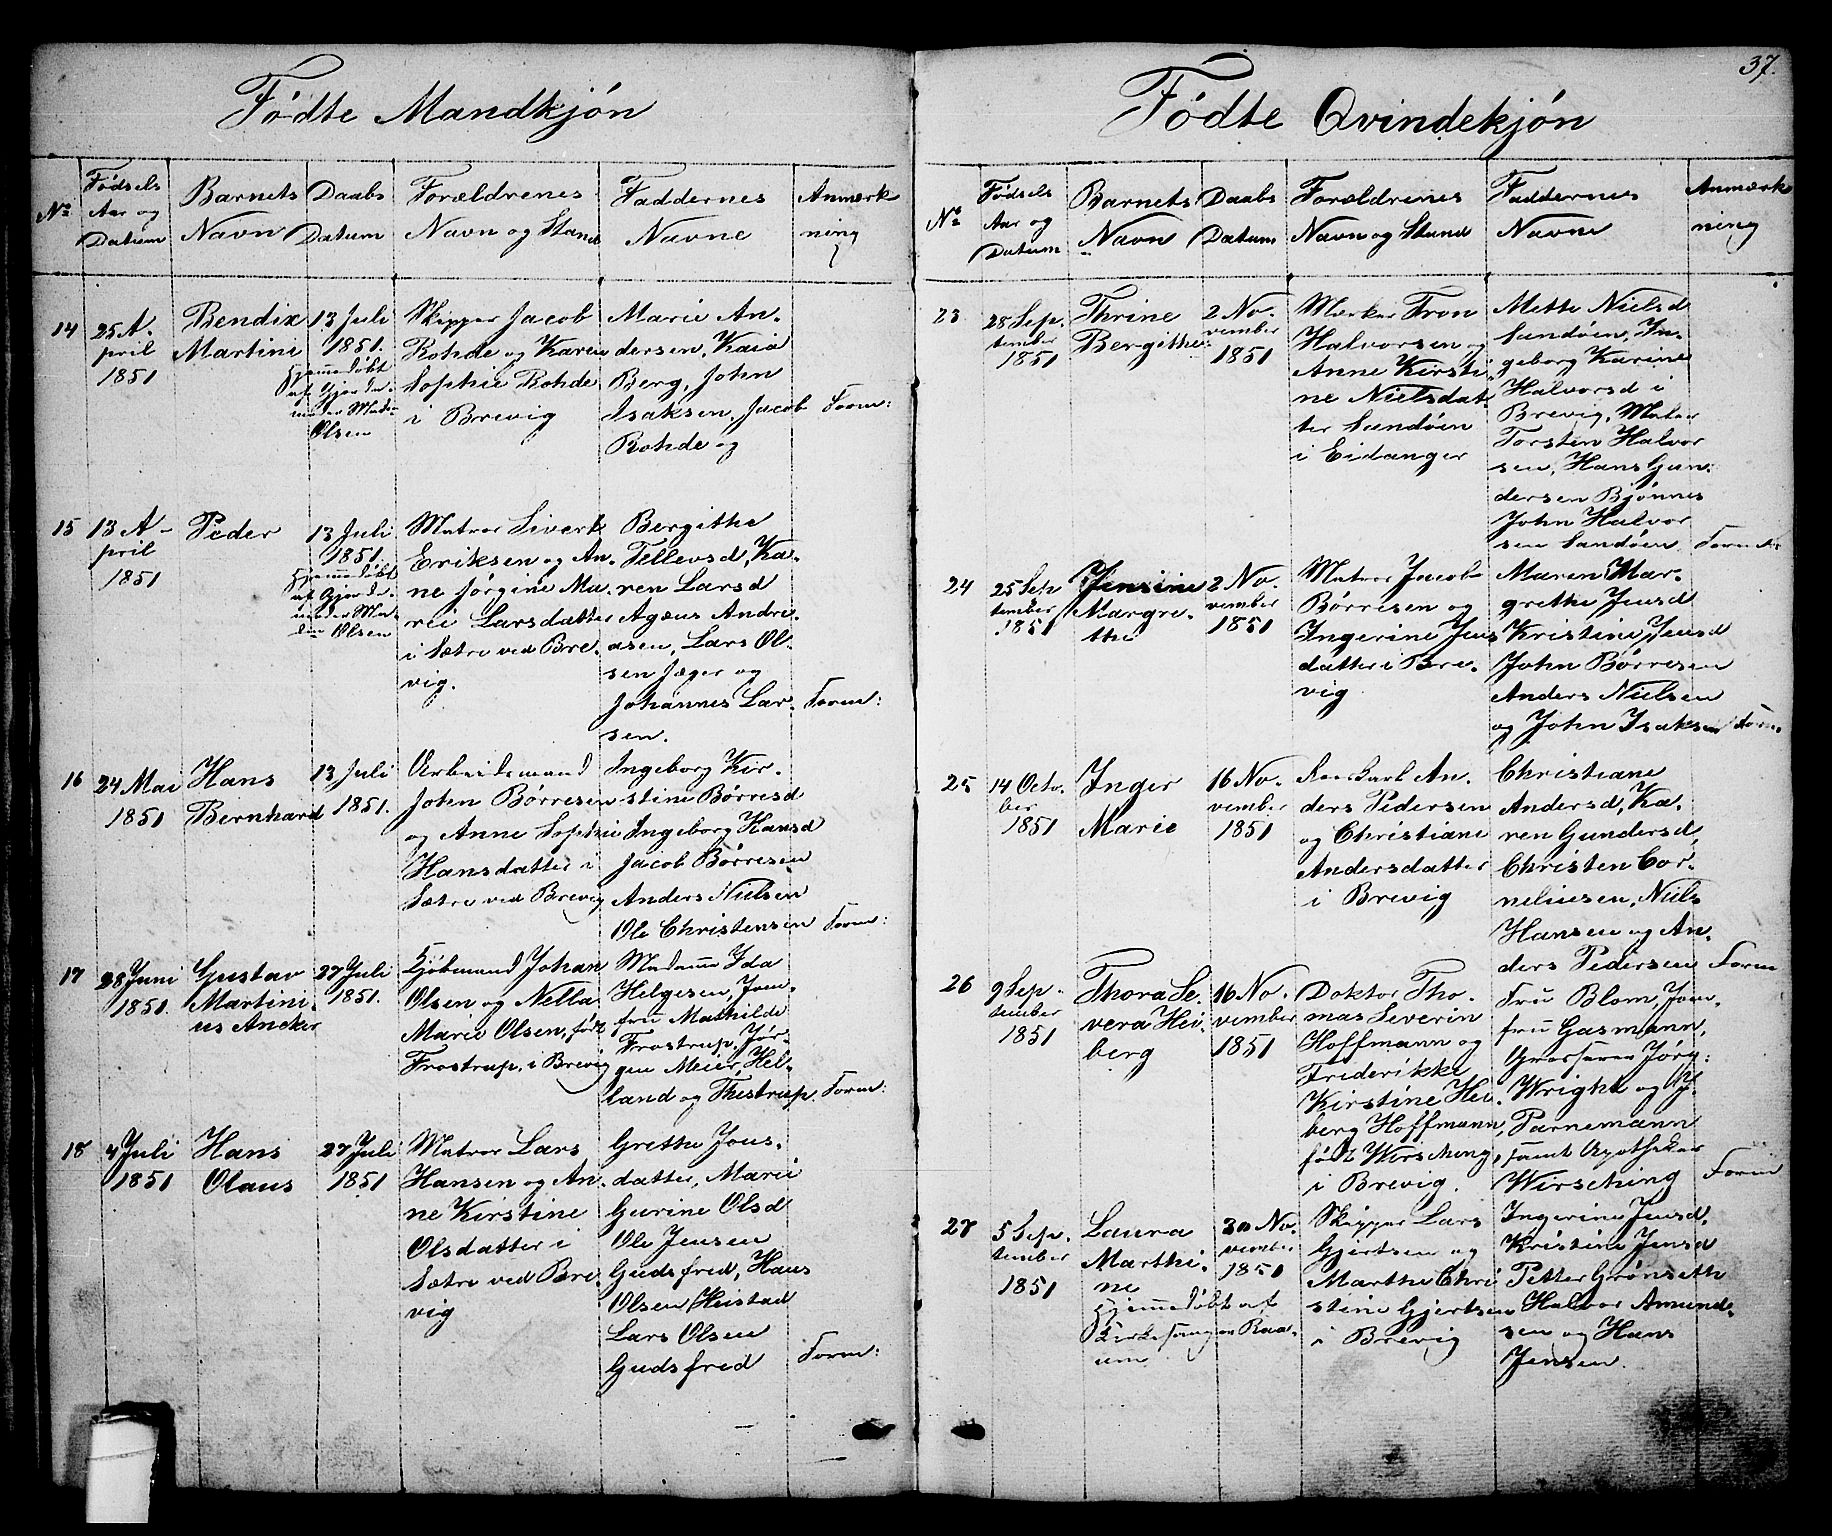 37.
Fødte Mandkjøn
No
Fødsels Aar og Datum
Barnets Navn
Daabs Datum
Forældrenes Navn og Stand
Faddernes Navne
Anmærkning
14
25 A-
pril
1851
Bendix
Martini
13 Juli
1851.
Hjemmedøbt
af Gjorde-
moder Mad-
Olsen
Skipper Jacob
Rohde og Karen
Sophie Rohde
i Brevig
Marie An-
dersen, Kaia
Berg, John
Isaksen, Jacob
Rohde og
Form:
15
13 A-
pril
1851
Peder
13 Juli
1851.
Hjemmedøbt
af Gjorde-
moder Ma-
dam Olsen
Matros Sivert
Eriksen og An-
ne Jørgine Ma-
rie Larsdatter
i Sætre ved Bre-
vig.
Bergithe
Tellevsd, Ka-
ren Larsd
Agæus Andre-
asen, Lars Ol-
sen Jæger og
Johannes Lar-
sen.
Form:
16
24 Mai
1851
Hans
Bernhard
13 Juli
1851.
Arbeidsmand
John Børresen
og Anne Sophie
Hansdatter i
Sætre ved Brevig
Ingeborg Kir-
stine Børresd
Ingeborg Hansd
Jacob Børresen
Anders Nielsen
Ole Christensen
Form:
17
28 Juni
1851.
Gustav
Martini-
us Ancker
27 Juli
1851.
Kjøbmand Johan
Olsen og Nella
Marie Olsen, født
Frostrup, i Brevig
Madame Ida
Helgesen, Jom-
fru Mathilde
Frostrup, Jør-
gen Meier, Hel-
land og Thistrup.
Form:
18
4 Juli
1851
Hans
Olaus
27 Juli
1851
Matros Lars
Hansen og An-
ne Kirstine
Olsdatter i
Sætre ved Bre-
vig
Grethe Jons-
datter, Marie
Gurine Olsd
Ole Jensen
Gudsfred, Hans
Olsen Heistad
Lars Olsen
Gudsfred
Form:
Fødte Qvindekjøn
No
Fødsels Aar og Datum
Barnets Navn
Daabs Datum
Forældrenes Navn og Stand
Faddernes Navne
Anmærkning
23
28 Sep-
tember
1851
Thrine
Bergithe
2 No-
vember
1851
Mærker Tron
Halvorsen og
Anne Kirsti-
ne Nielsdat-
ter Sandøen
i Eidanger
Mette Nielsd
Sandøen, In-
geborg Karine
Halvorsd i
Brevig, Mater
Torsten Halvor
sen, Hans Gun-
dersen Bjønnes
John Halvor
sen Sandøen
Form:
24
25 Sep
tember
1851
Jensine
Margre-
the
2 No-
vember
1851
Matros Jacob
Børresen og
Ingerine Jens
datter i Bre-
vig
Maren Mar-
grethe Jensd
Kristine Jensd
John Børresen
Anders Nielsen
og John Isaksen
Form.
25
14 Octo-
ber
1851
Inger
Marie
16 No-
vember
1851
Carl An-
ders Pedersen
og Christiane
Andersdatter
i Brevig
Christiane
Andersd, Ka-
ren Gundersd,
Christen Cor-
neliusen, Niels
Hansen og An-
ders Pedersen
Form
26
9 Sep-
tember
1851
Thora Se-
vera Hei-
berg
16 No-
vember
1851
Doktor Tho-
mas Severin
Hoffmann og
Friderikke
Kirstine Hei-
berg Hoffmann,
født Wirsching,
i Brevig.
Fru Blom, Jom-
fru Gasmann,
Grosserer Jørg:
Wright og J.
Parnemann
samt Apotheker
Wirsching
Form
27
5 Sep-
tember
1851
Laura
Marthi-
ne
Hjemmedøbt af
Kirkesanger Raa-
um
30 No-
vember
1851
Skipper Lars
Gjertsen og
Marthe Chri
stine Gjertsen
i Brevig
Ingerine Jensd.
Kristine Jensd
Petter Grønseth
Halvor Amund-
sen og Hans
Jensen.